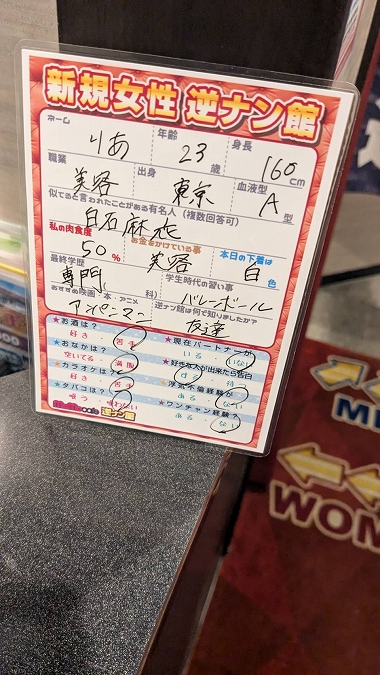 新規女性 逆ナン館
ネーム 年齢 身長
りあ 23歳 160cm
職業 出身 血液型
美容 東京 A型
似てると言われたことがある有名人（複数回答可）
白石麻衣
私の肉食度 お金をかけている事 本日の下着は
50% 美容 白色
最終学歴 学生時代の習い事
専門 バレーボール
おすすめ映画・本・アニメ 逆ナン館は何で知りましたか？
アンパンマン 友達
★お酒は？ ★現在パートナーが
好き・苦手 いる・いない
★おなかは？ ★好きな人が出来たら告白
空いてる・満腹 する・待つ
★カラオケは？ ★浮気不倫経験が
好き・苦手 ある・ない
★タバコは？ ★ワンチャン経験？
吸う・吸わない ある・ない
cafe 逆ナン館
M
WOM